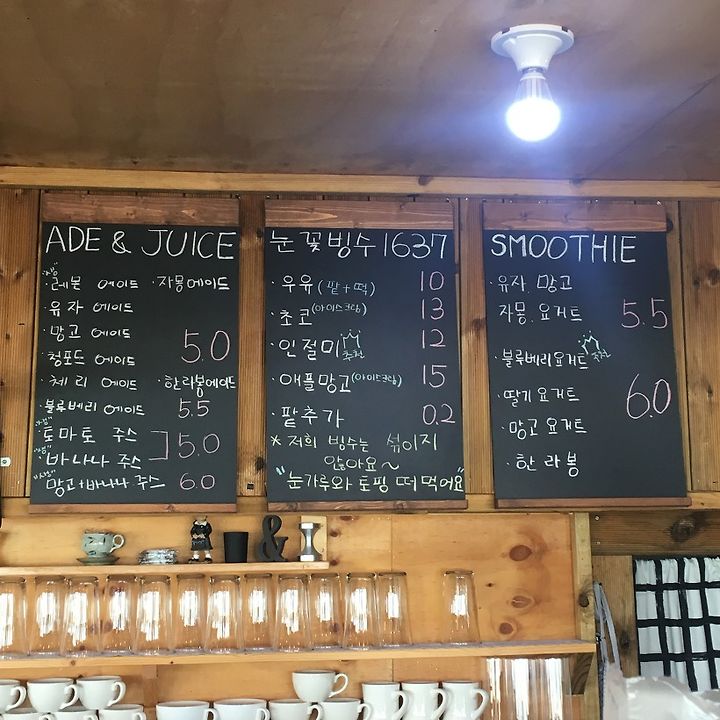 ADE & JUICE
"생"
·레몬 에이드 ·자몽에이드
·유자 에이드
·망고 에이드
5.0
·청포도 에이드
·체리 에이드 ·한라봉에이드
·블루베리 에이드 5.5
"생"
·토마토 주스
5.0
"생"
·바나나 주스
"생"
망고+바나나 주스 6.0
눈꽃빙수 1637
·우유(팥+떡) 10
·초코(아이스크림) 13
·인절미 추천 12
·애플망고(아이스크림) 15
·팥추가 0.2
* 저희 빙수는 섞이지
않아요~
"눈가루와 토핑 떠먹어요"
SMOOTHIE
·유자, 망고
자몽, 요거트 5.5
·블루베리요거트 추천
·딸기요거트 6.0
·망고 요거트
·한라봉
&